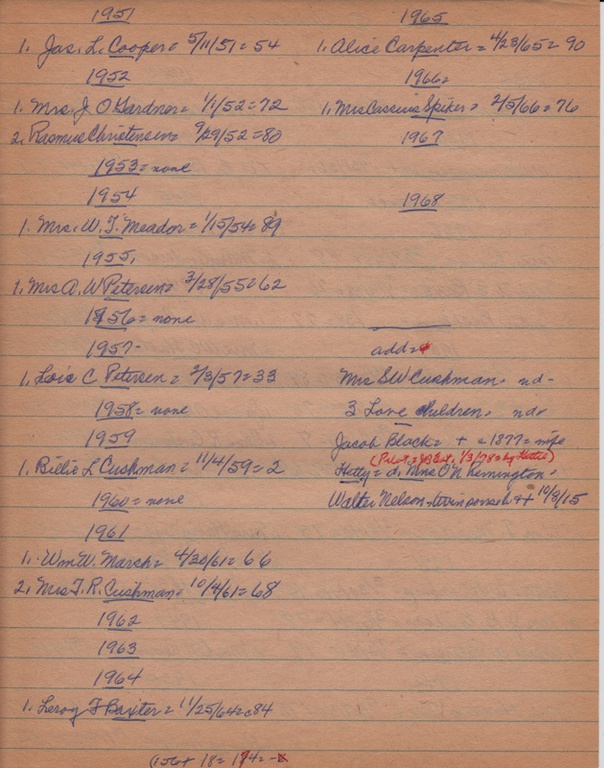 1951
1. Jas. L. Cooper = 5/11/51 = 54
1952
1. Mrs. J O Gardner = 1/1/52 = 72
2. Rasmus Christensen = 9/29/52 = 80
1953 = none
1954
1. Mrs. W. T. Meador = 1/15/54 = 89
1955.
1. Mrs A. W Petersen = 3/28/55 = 62
1956 = none
1957-
1. Lois C Petersen = 2/3/57 = 33
1958 = none
1959
1. Billie L Cushman = 11/4/59 = 2
1960 = none
1961
1. Wm W. Marsh = 4/20/61 = 66
2. Mrs T. R. Cushman = 10/4/61 = 68
1962
1963
1964
1. Leroy F Baxter = 11/25/64 = 84
(156 + 18 = 174 =
1965
1. Alice Carpenter = 4/23/65 = 90
1966 =
1. Mrs Cassius Spiker = 2/5/66 = 76
1967
1968
add =
Mrs S W Cushman, nd-
3 Love Children, nd
Jacob Black = + = 1877 = wife
1/3/78 = by Hettie)
Hetty = d, Mrs O N Remington,
Walter Nelson 10/8/15